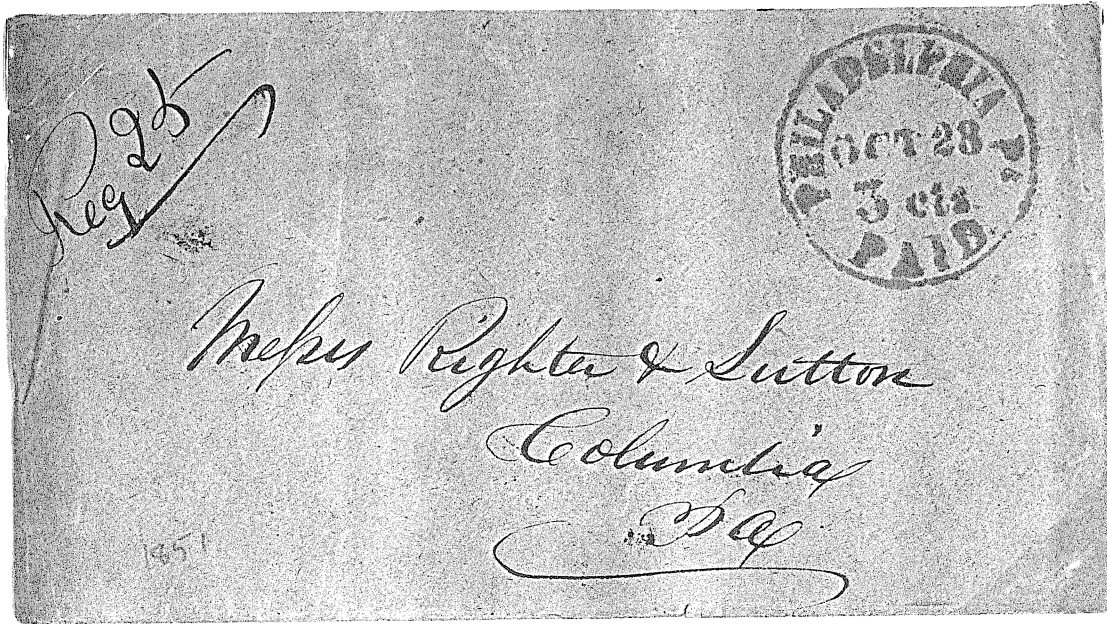 Reg 25
PHILADELPHIA Pa
OCT 28
3 cts
PAID
Messrs Righter & Sutton
Columbia
Pa
1851